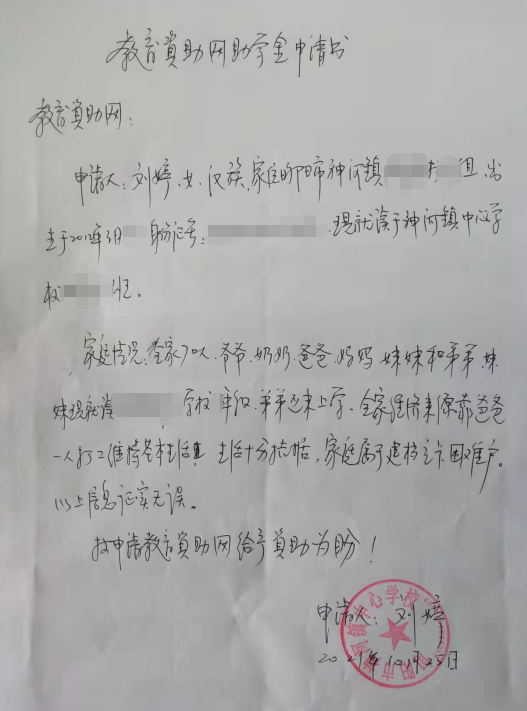 教育資助网助学金申请书
教育資助网：
申请人：刘婷、女、汉族、家庭旬阳市神河镇 组、出
生于2012年3月 身份证号： .现就读于神河镇中心学
校 班。
家庭情况：全家7口人、爷爷、奶奶、爸爸、妈妈、妹妹和弟弟、妹
妹现就读 学校 年级、弟弟还未上学、全家经济来源靠爸爸
一人打工维持基本生活 生活十分拮据，家庭属于建档立卡困难户。
以上信息证实无误。
故申请教育資助网给予資助为盼！
申请人：刘婷
2021年10月25日
神河镇中心学校
旬阳市